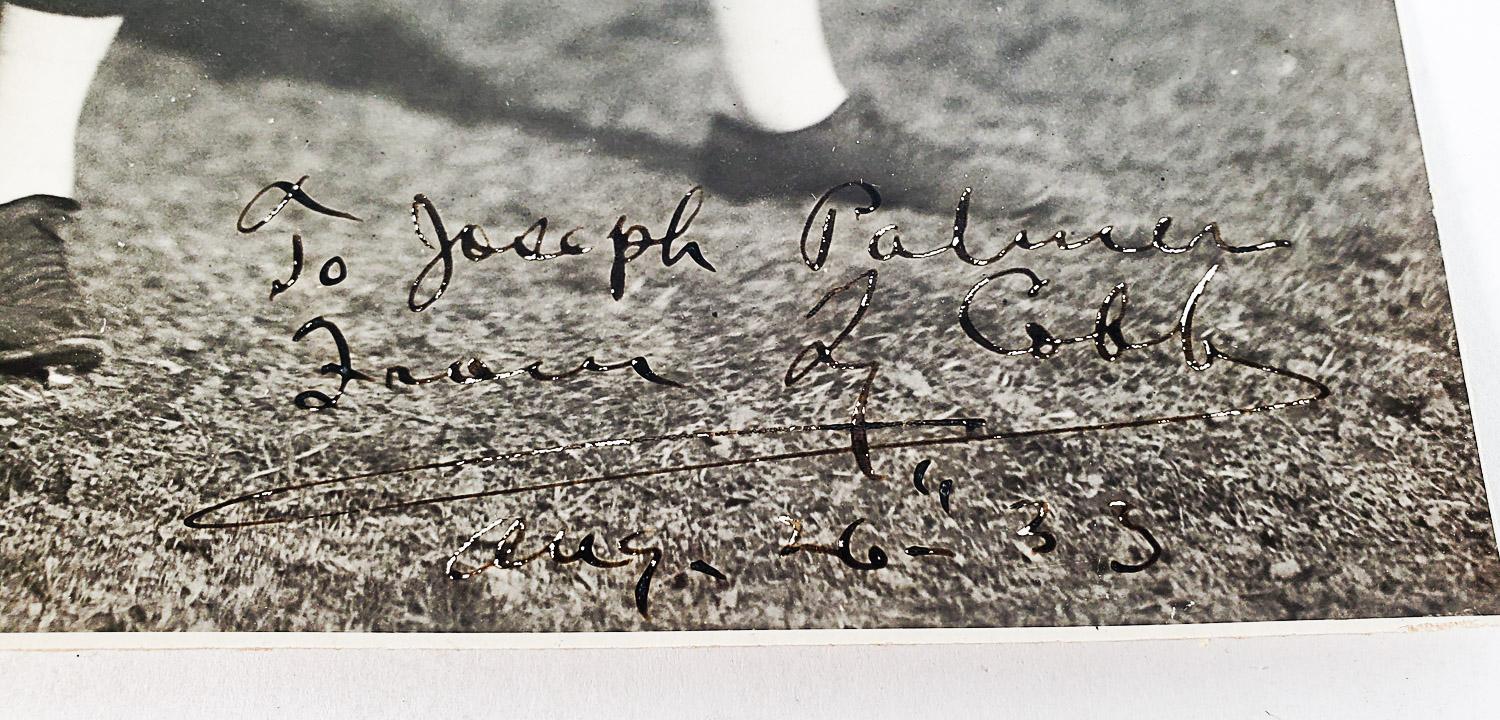 To Joseph Palmer
From Ty Cobb
Aug. 26-" 33